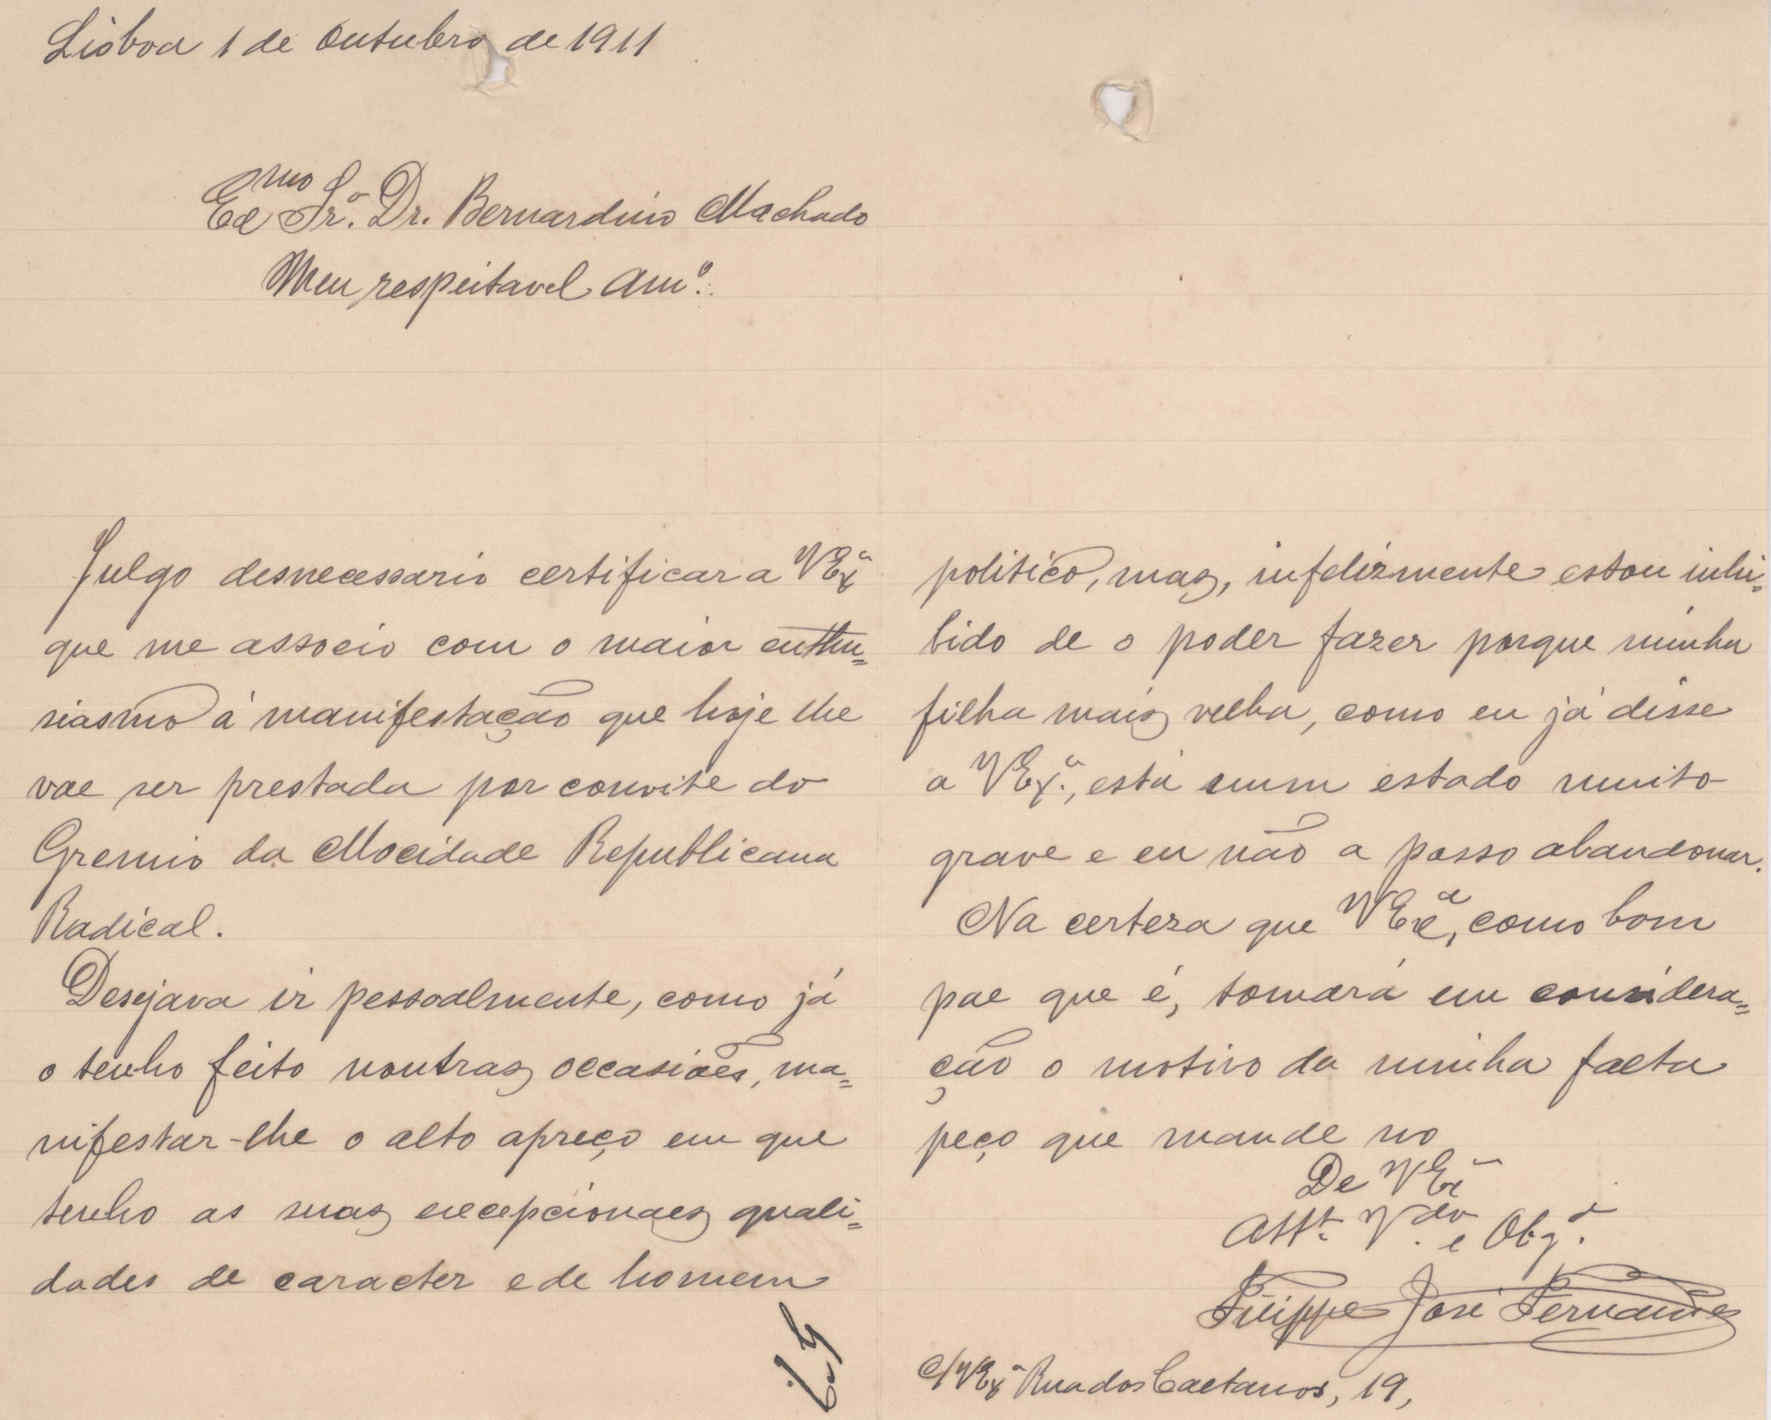 Lisboa 1 de Outubro de 1911
Exmo Sr. Dr. Bernardino Machado
Meu respeitavel Amº.
Julgo desnecessario certificar a VExª
que me associo com o maior enthu=
siasmo á manifestação que hoje lhe
vae ser prestada por convite do
Gremio da Mocidade Republicana
Radical.
Desejava ir pessoalmente, como já
o tenho feito noutras occasiões, ma=
nifestar-lhe o alto apreço em que
tenho as suas excepcionaes quali=
dades de caracter e de homem
politico, mas, infelizmente estou inhi=
bido de o poder fazer porque minha
filha mais velha, como eu já disse
a VExª., está num estado muito
grave e eu não a posso abandonar.
Na certeza que VExª, como bom
pae que é, tomará em considera=
ção o motivo da minha falta
peço que mande no
De VExª
Attº. Vdor. e Obgº.
Filippe José Fernandes
C/VExª Rua dos Caetanos, 19,